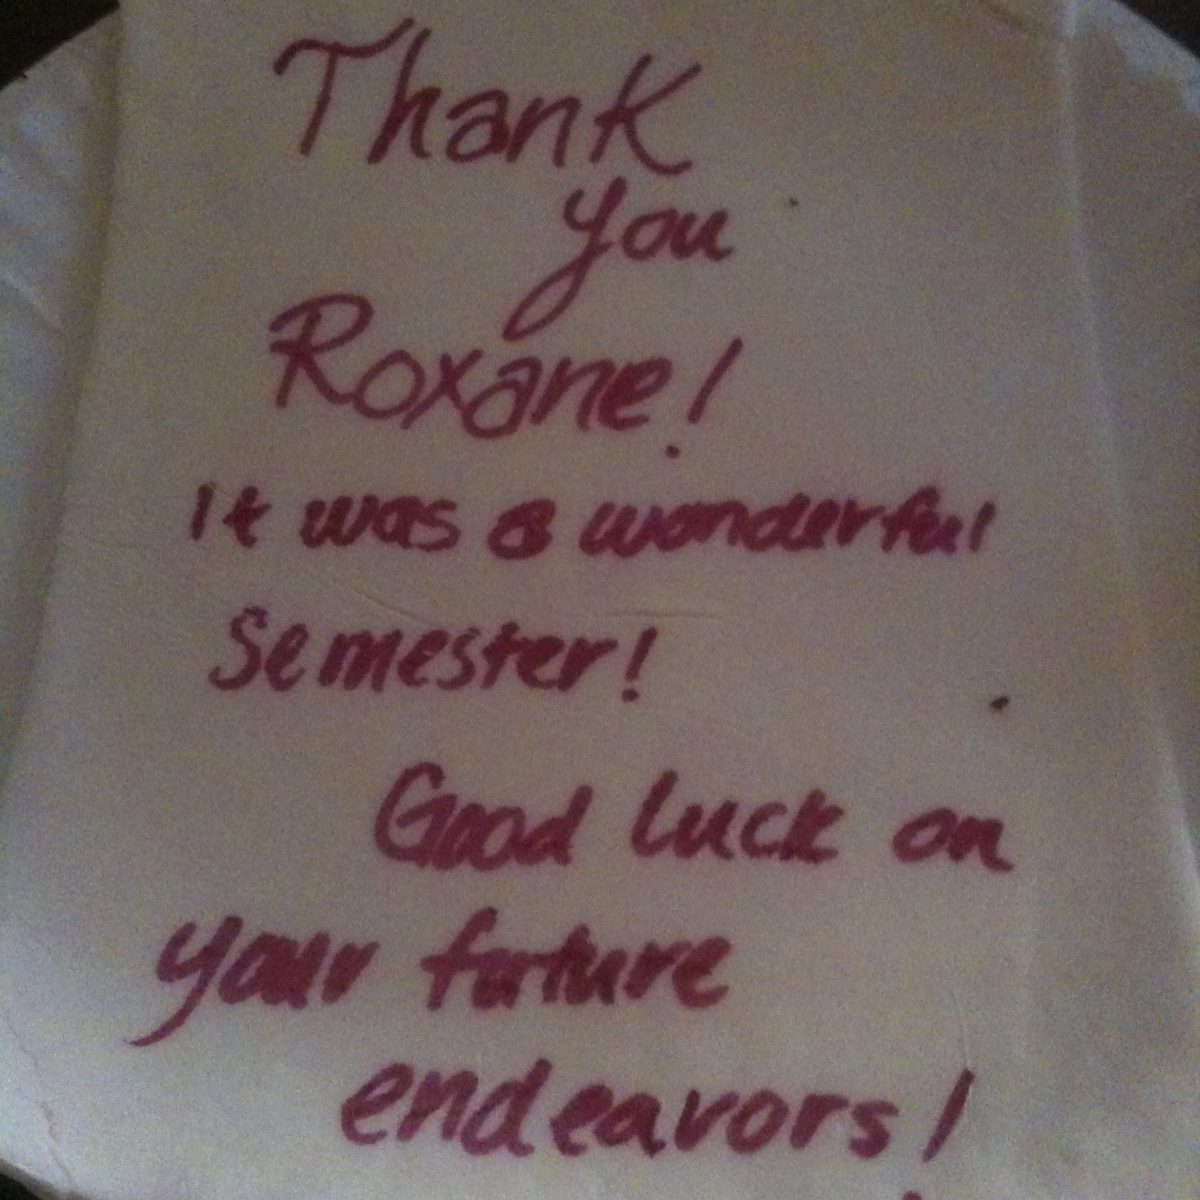 Thank
you
Roxane!
It was a wonderful
Semester!
Good luck on
your future
endeavors!